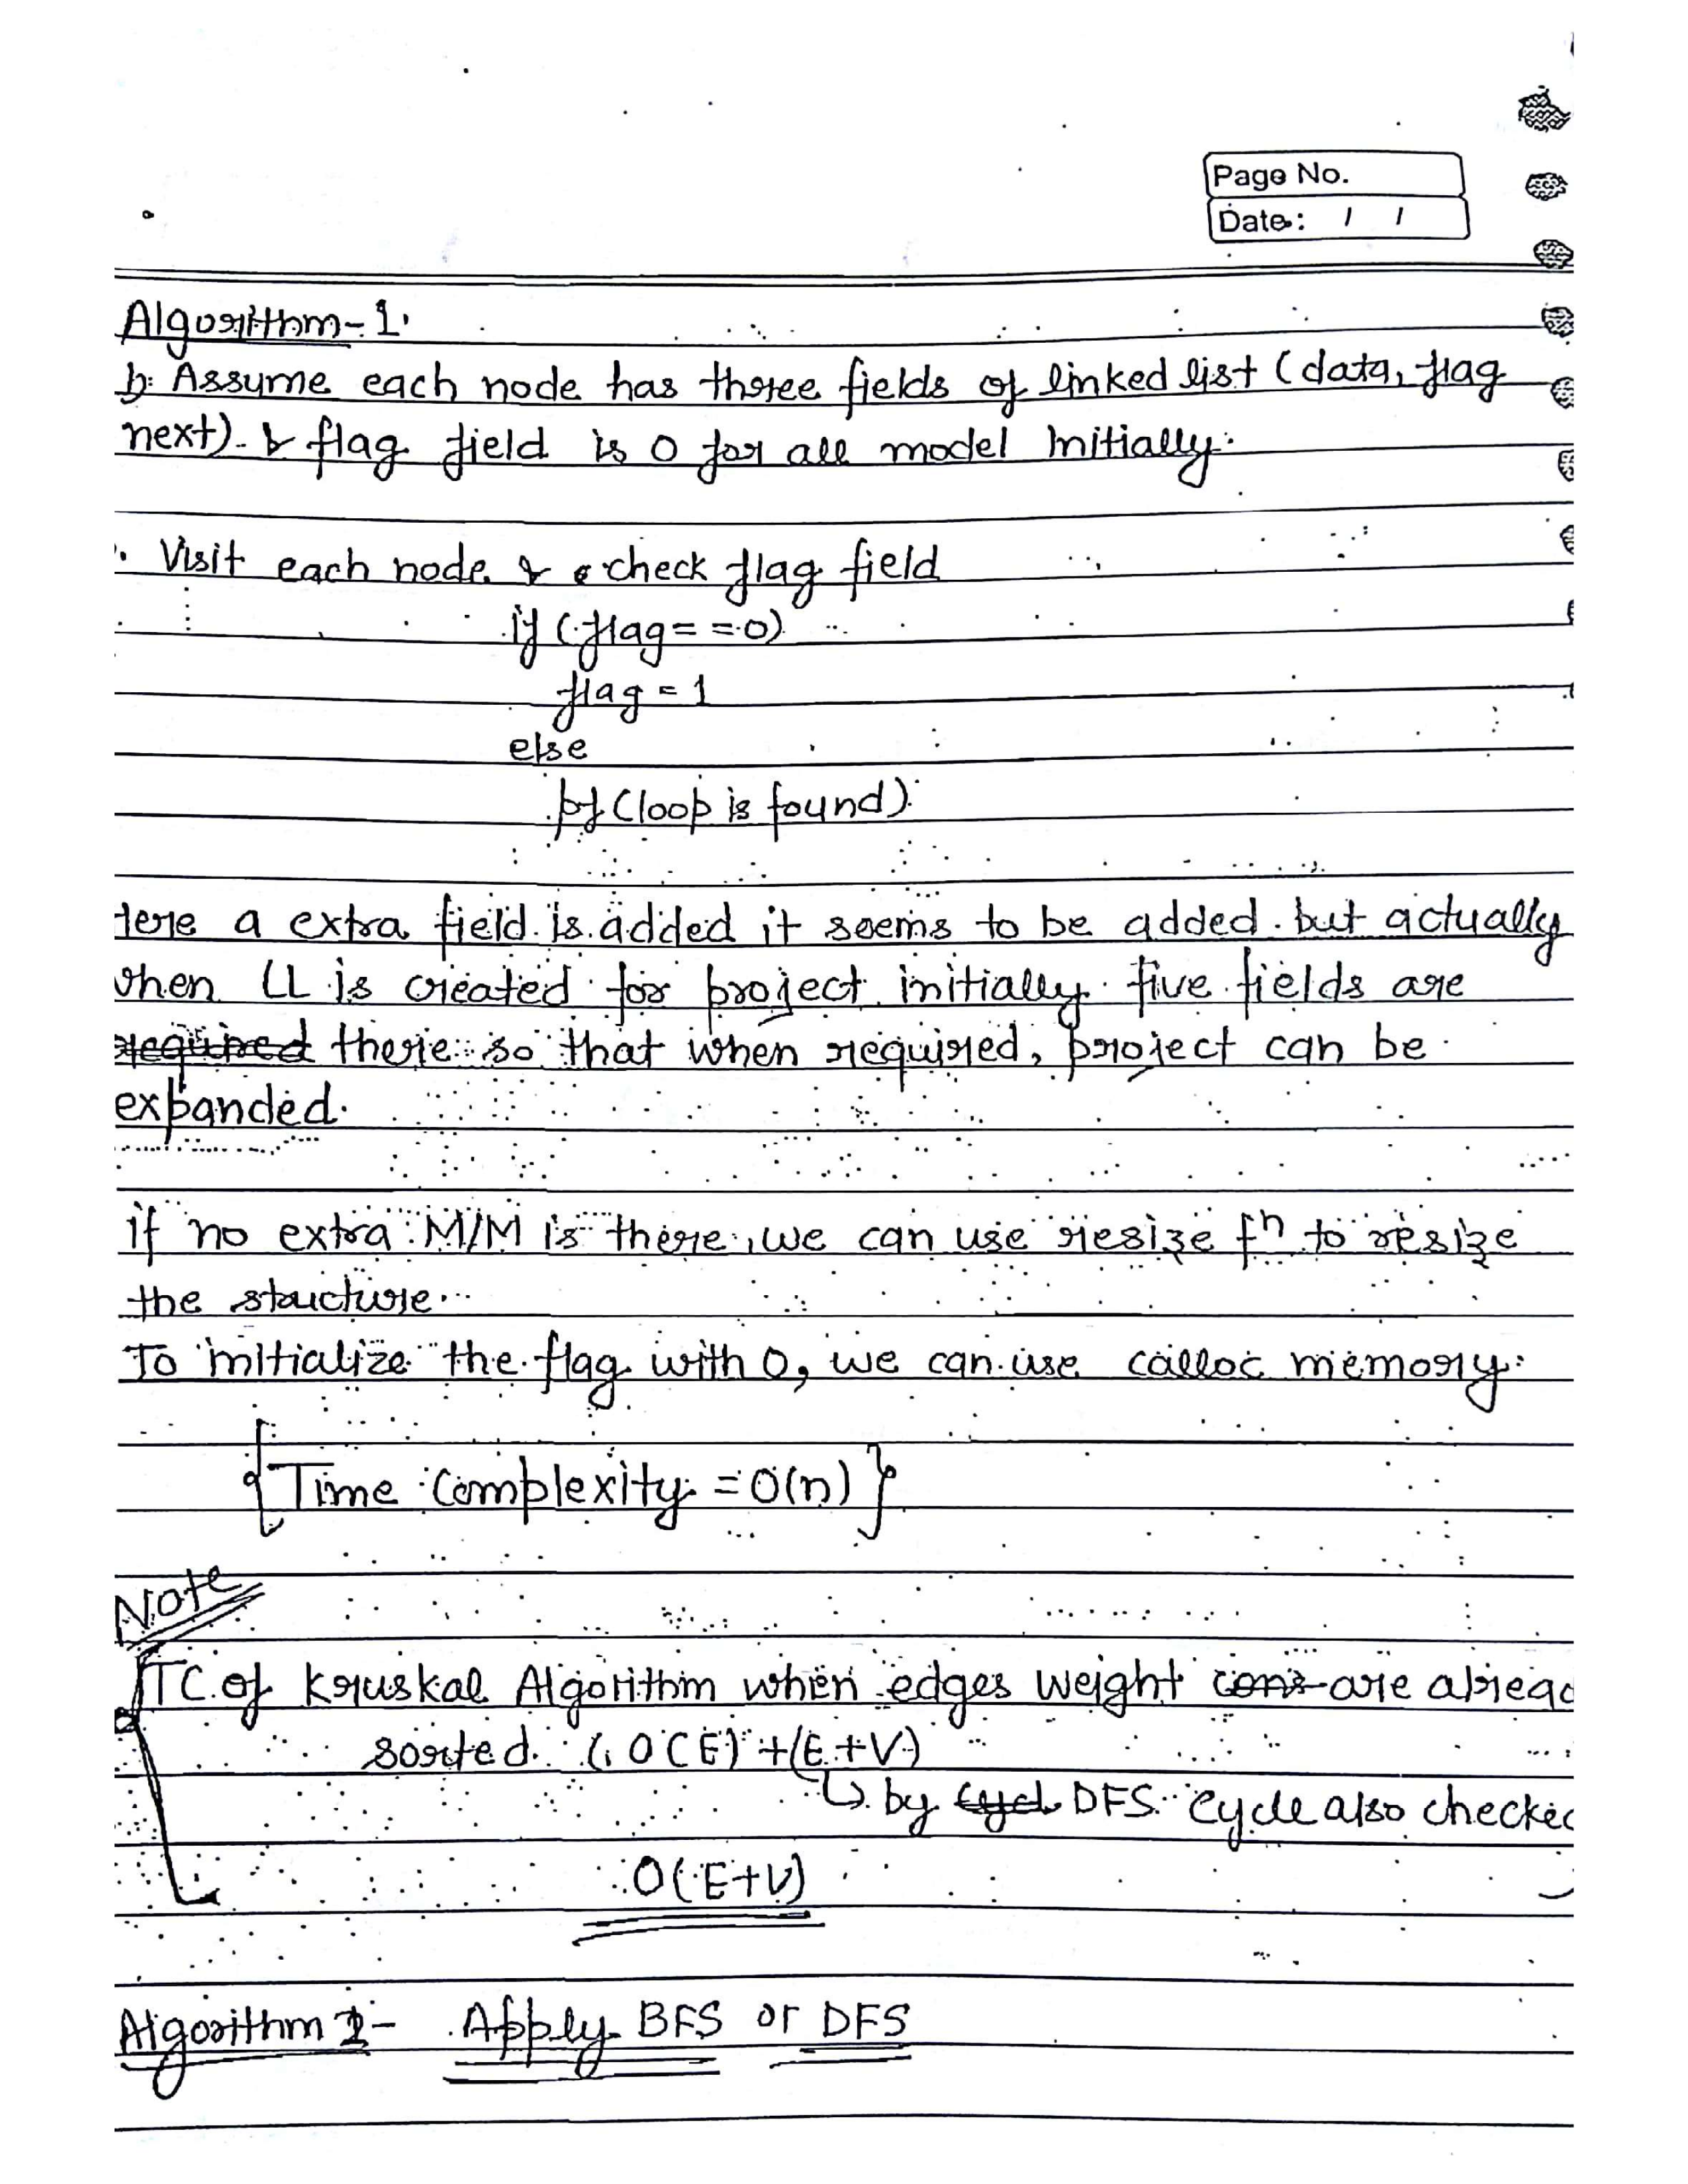 Page No.
Date: / /
Algorithm-1.
b: Assume each node has three fields of linked list (data, flag
next). & flag field is 0 for all model initially.
. Visit each node & check flag field
if (flag==0)
flag = 1
else
pf (loop is found)
Here a extra field is added it seems to be added. but actually
when LL is created for project initially five fields are
required there so that when required, project can be
expanded.
if no extra M/M is there, we can use resize fn to resize
the structure.
To initialize the flag with 0, we can use calloc memory.
{Time Complexity = O(n)}
Note
TC of Kruskal Algorithm when edges weight are alread
sorted. (, O(E) + (E+V)
↳ by DFS cycle also checked
O(E+V)
Algorithm 2- Apply BFS or DFS